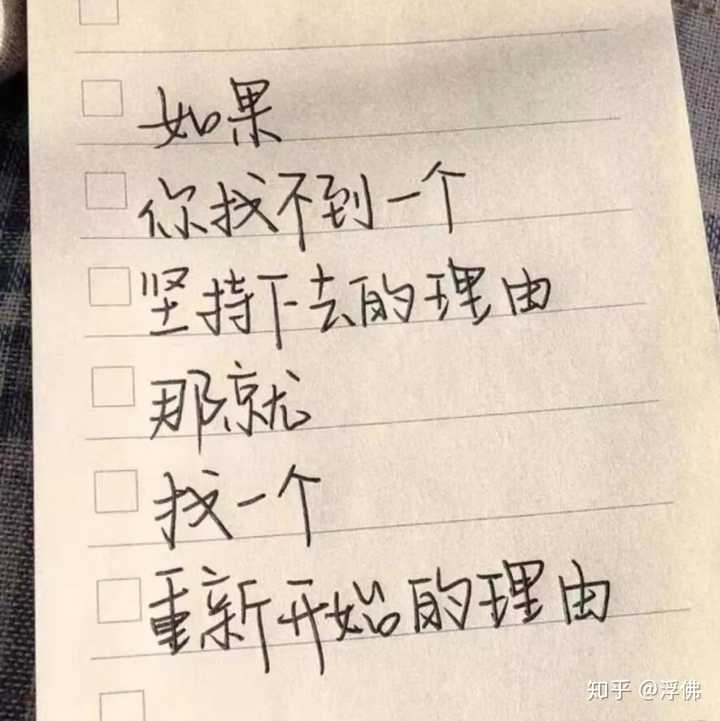 如果
你找不到一个
坚持下去的理由
那就
找一个
重新开始的理由
知乎 @浮佛